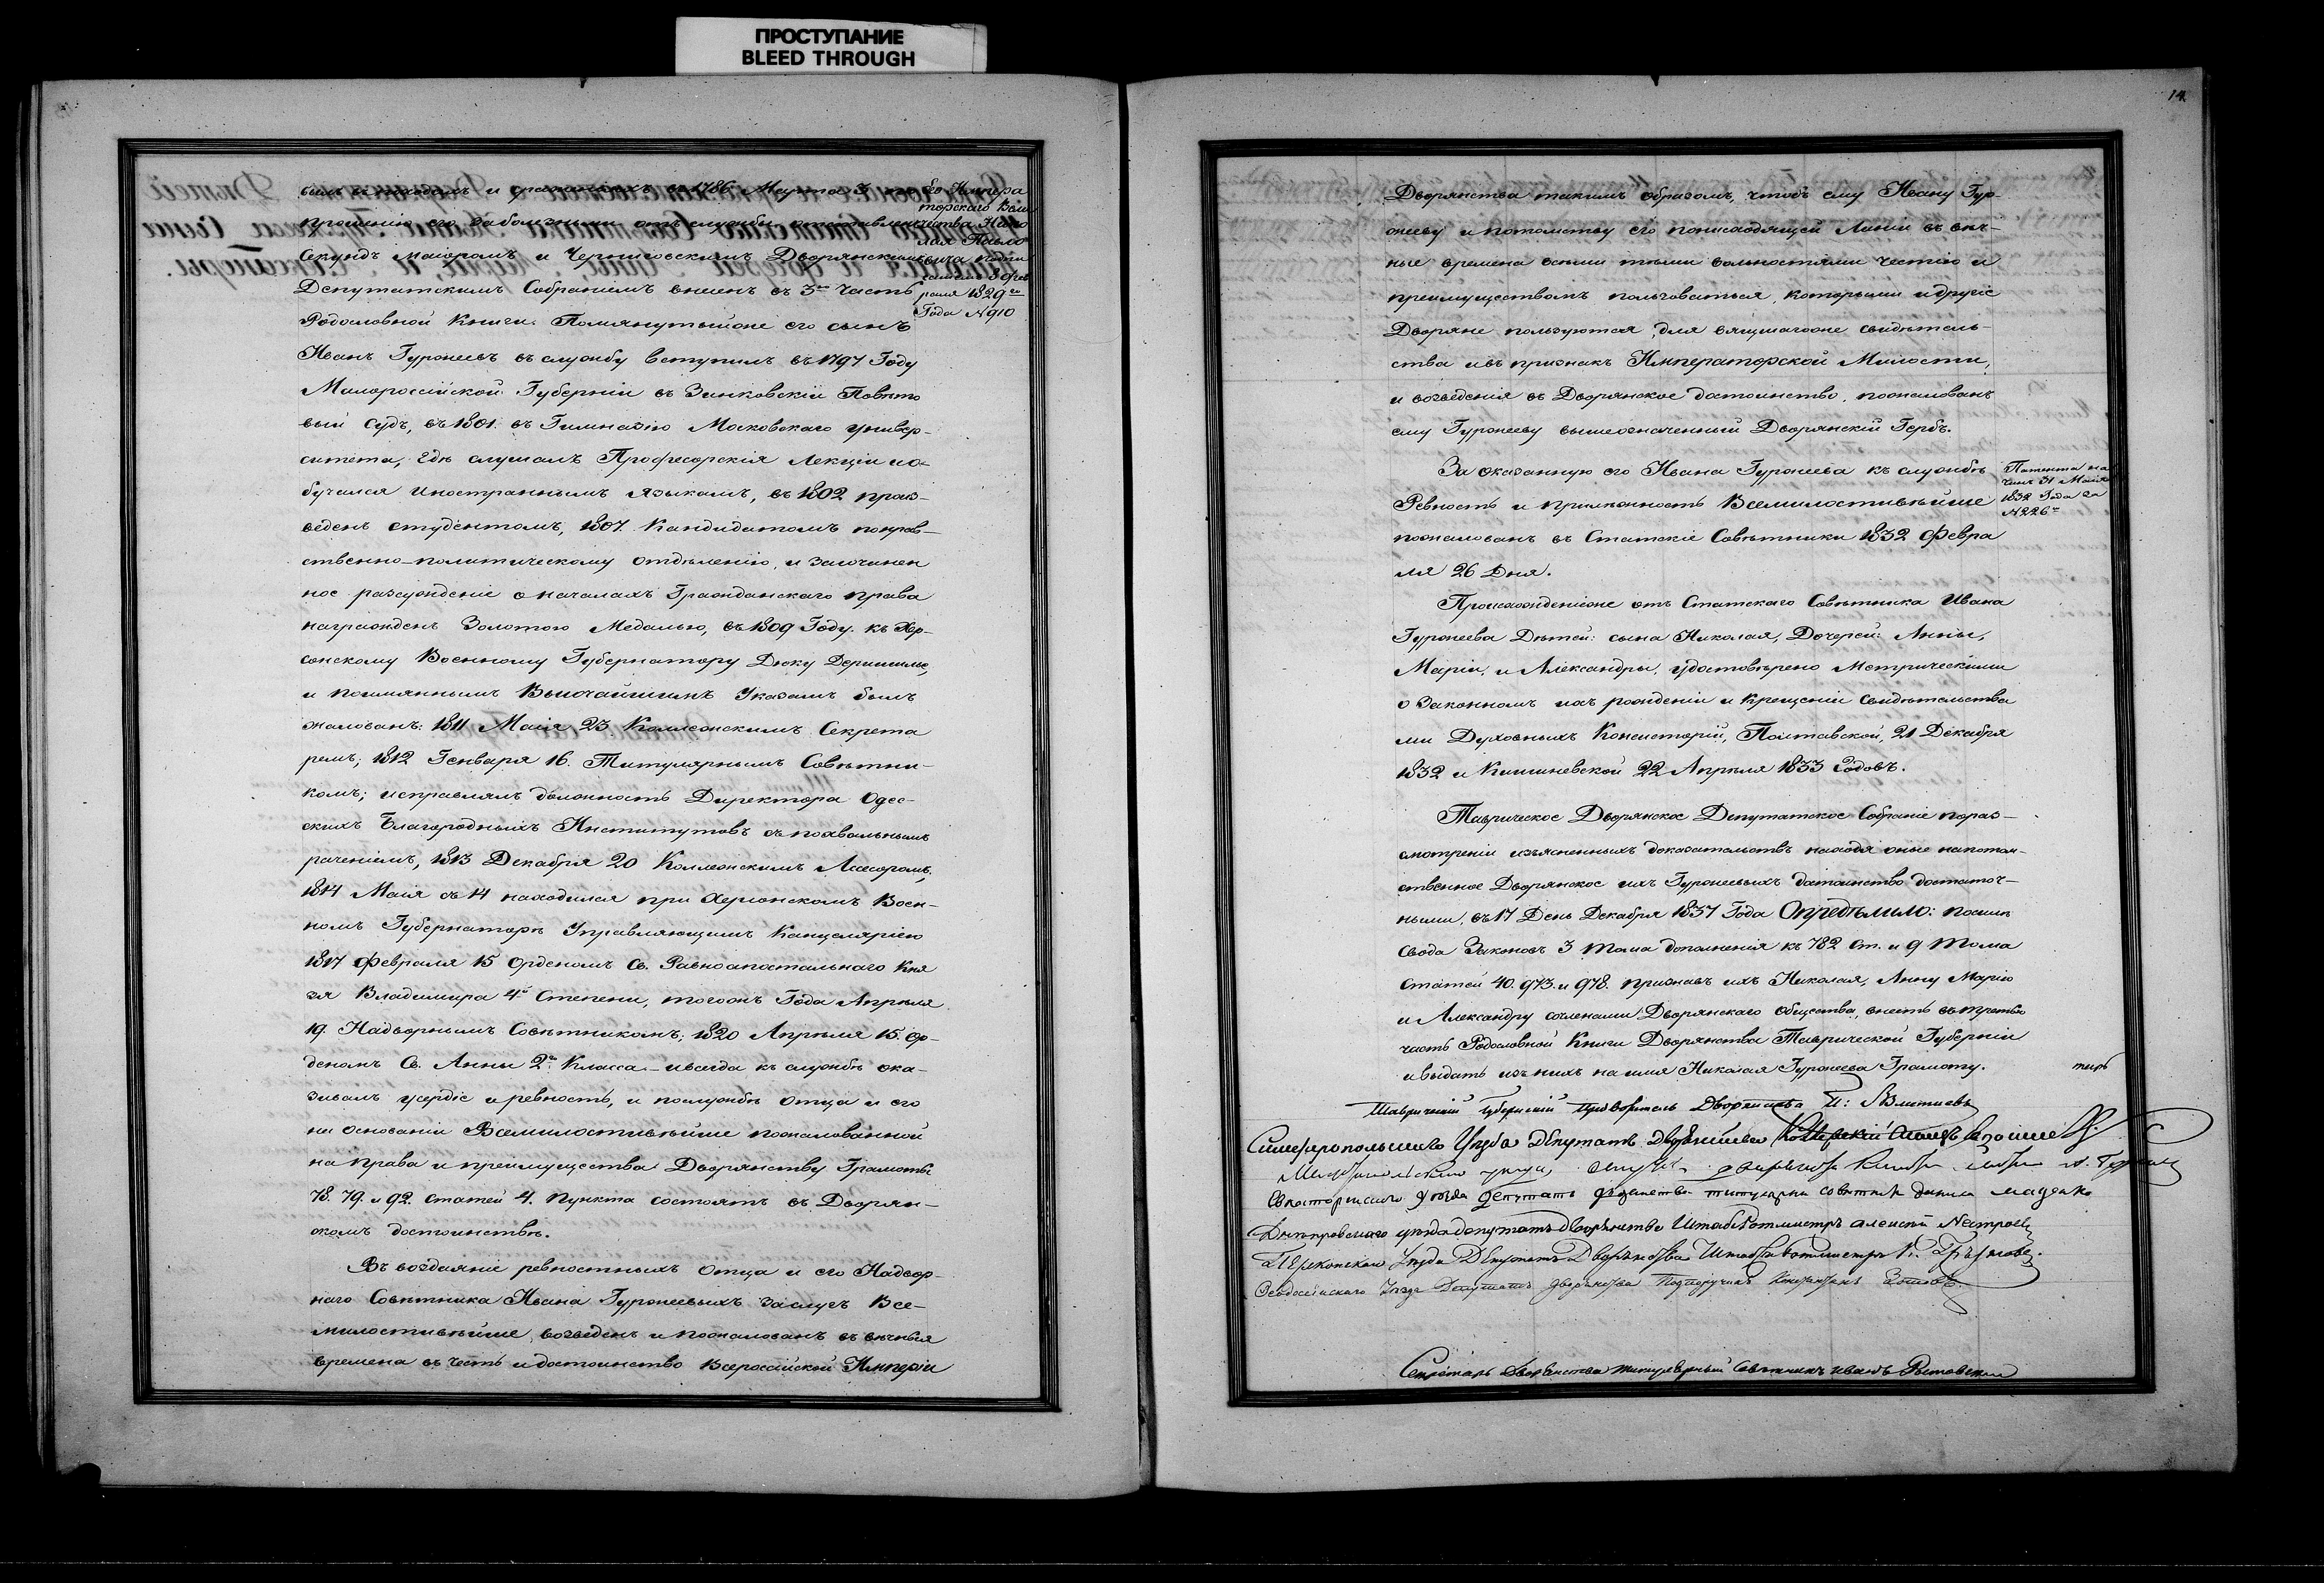 ПРОСТУПАНИЕ
BLEED THROUGH
былъ въ походахъ и сраженіяхъ въ 1786 Марта 3 по
прошенію его за болѣзньми отъ службы отставленъ
Секундъ Маіоромъ и Черниговскимъ Дворянскимъ
Депутатскимъ Собраніемъ внесенъ въ 3ю Часть
Родословной Книги. Помянутый же его сынъ
Иванъ Гуржеевъ въ службу вступилъ въ 1797 Году
Малоросійской Губерніи въ Зинковскій Повѣто
вый Судъ, въ 1801. въ Гимназію Московскаго универ-
ситета, гдѣ слушалъ Професорскія Лекціи и о-
бучался Иностраннымъ языкамъ, въ 1802 произ-
веденъ студентомъ, 1807. Кандидатомъ по нрав-
ственно-политическому отдѣленію, и за сочинен
ное разсужденіе о началахъ Гражданскаго права
награжденъ Золотою Медалью, въ 1809 Году. къ Хер-
сонскому Военному Губернатору Дюку Деришелье,
и по имяннымъ Высочайшимъ Указамъ былъ
жалованъ: 1811 Маія 23. Коллежскимъ Секрета
ремъ; 1812 Генваря 16. Титулярнымъ Совѣтни-
комъ; исправлялъ должность Директора Одес-
скихъ Благородныхъ Институтовъ съ похвальнымъ
раченіемъ, 1813 Декабря 20 Коллежскимъ Асесоромъ,
1814 Маія съ 14 находился при Херсонскомъ Воен-
номъ Губернаторѣ Управляющимъ Канцеляріею
1817 Февраля 15 Орденомъ Св. Равноапостальнаго Кня
зя Владимира 4й Степени, тогожъ Года Апрѣля
19. Надворнымъ Совѣтникомъ; 1820 Апрѣля 15. Ор-
деномъ Св. Анны 2го Класса - и всегда къ службѣ ока-
зывалъ усердіе и ревность, и по службѣ Отца и его
на основаніи Всемилостивѣйше пожалованной
на права и преимущества Дворянству Грамоты
78. 79. и 92. статей 4. пункта состоятъ въ Дворян-
скомъ достоинствѣ.
Въ воздаяніе ревностныхъ Отца и его Надвор-
наго Совѣтника Ивана Гуржеевыхъ заслугъ Все-
милостивѣйше возведенъ и пожалованъ въ вѣчныя
времена въ честь и достоинство Всеросійской Имперіи
Его Импера
торскаго Вели
чества Нико
лая Павло
вича
8 фев
раля 1829го
Года №910
14.
Дворянства такимъ образомъ, чтобъ ему Ивану Гур-
жееву и потомству его по нисходящей Линіи въ вѣч-
ные времена всѣми тѣми вольностями честію и
преимуществомъ пользоваться, которыми и другіе
Дворяне пользуются, для вящшаго же свидѣтель-
ства и въ признакъ Императорской Милости,
и возведенія въ Дворянское достоинство, пожалованъ
ему Гуржееву вышеозначенный Дворянскій Гербъ.
За оказанную его Ивана Гуржеева къ службѣ
Ревность и прилѣжность Всемилостивѣйше
пожалованъ въ Статскіе Совѣтники 1832 Февра
ля 26 Дня.
Патента на
чинъ 31 Майя
1832 Года за
№226м
Происхожденіе же отъ Статскаго Совѣтника Ивана
Гуржеева Дѣтей: сына Николая, Дочерей: Анны,
Маріи, и Александры, удостовѣрено Метрическими
о Законномъ ихъ рожденіи и крещеніи Свидѣтельства
ми Духовныхъ Консисторій, Полтавской, 21 Декабря
1832 и Кишиневской 22 Апрѣля 1833 Годовъ.
Таврическое Дворянское Депутатское Собраніе по раз-
смотреніи изъясненныхъ доказательствъ находя оные на потом-
ственное Дворянское ихъ Гуржеевыхъ достоинство достаточ-
ными, въ 17 День Декабря 1837 Года Опредѣлило: по силѣ
Свода Законовъ 3 Тома дополненія къ 782 ст. и 9 Тома
Статей 40. 973. и 978. признавъ ихъ Николая, Анну Марію
и Александру сочленами Дворянскаго Общества, внесть въ третью
часть Родословной Книги Дворянства Таврической Губерніи
и выдать изъ нихъ на имя Николая Гуржеева Грамоту.
Таврическій Губернскій Предводитель Дворянства
Симферопольскаго Уѣзда Депутатъ Дворянства
Евпаторійскаго уѣзда Депутатъ дворянства титулярный совѣтникъ
Днѣпровскаго уѣзда депутатъ дворянства Штабсъ Ротмистръ Алексѣй
Перекопскаго Уѣзда Депутатъ Дворянства Штабсъ Ротмистръ
Феодосійскаго Уѣзда Депутатъ дворянства Подпоручикъ
Секретарь Дворянства титулярный Совѣтникъ Иванъ